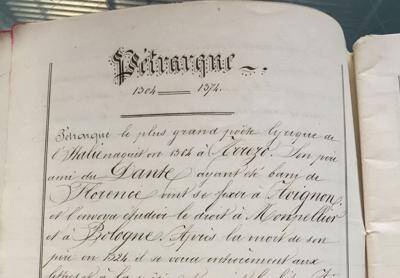 Pétrarque.
1304 — 1374.
Pétrarque le plus grand poète lyrique de
l'Italie naquit en 1304 à Arezzo. Son père
ami du Dante ayant été bani de
Florence vint se fixer à Avignon
et l'envoya étudier le droit à Montpellier
et à Bologne. Après la mort de son
père en 1324 il se voua entièrement aux
lettres et à la